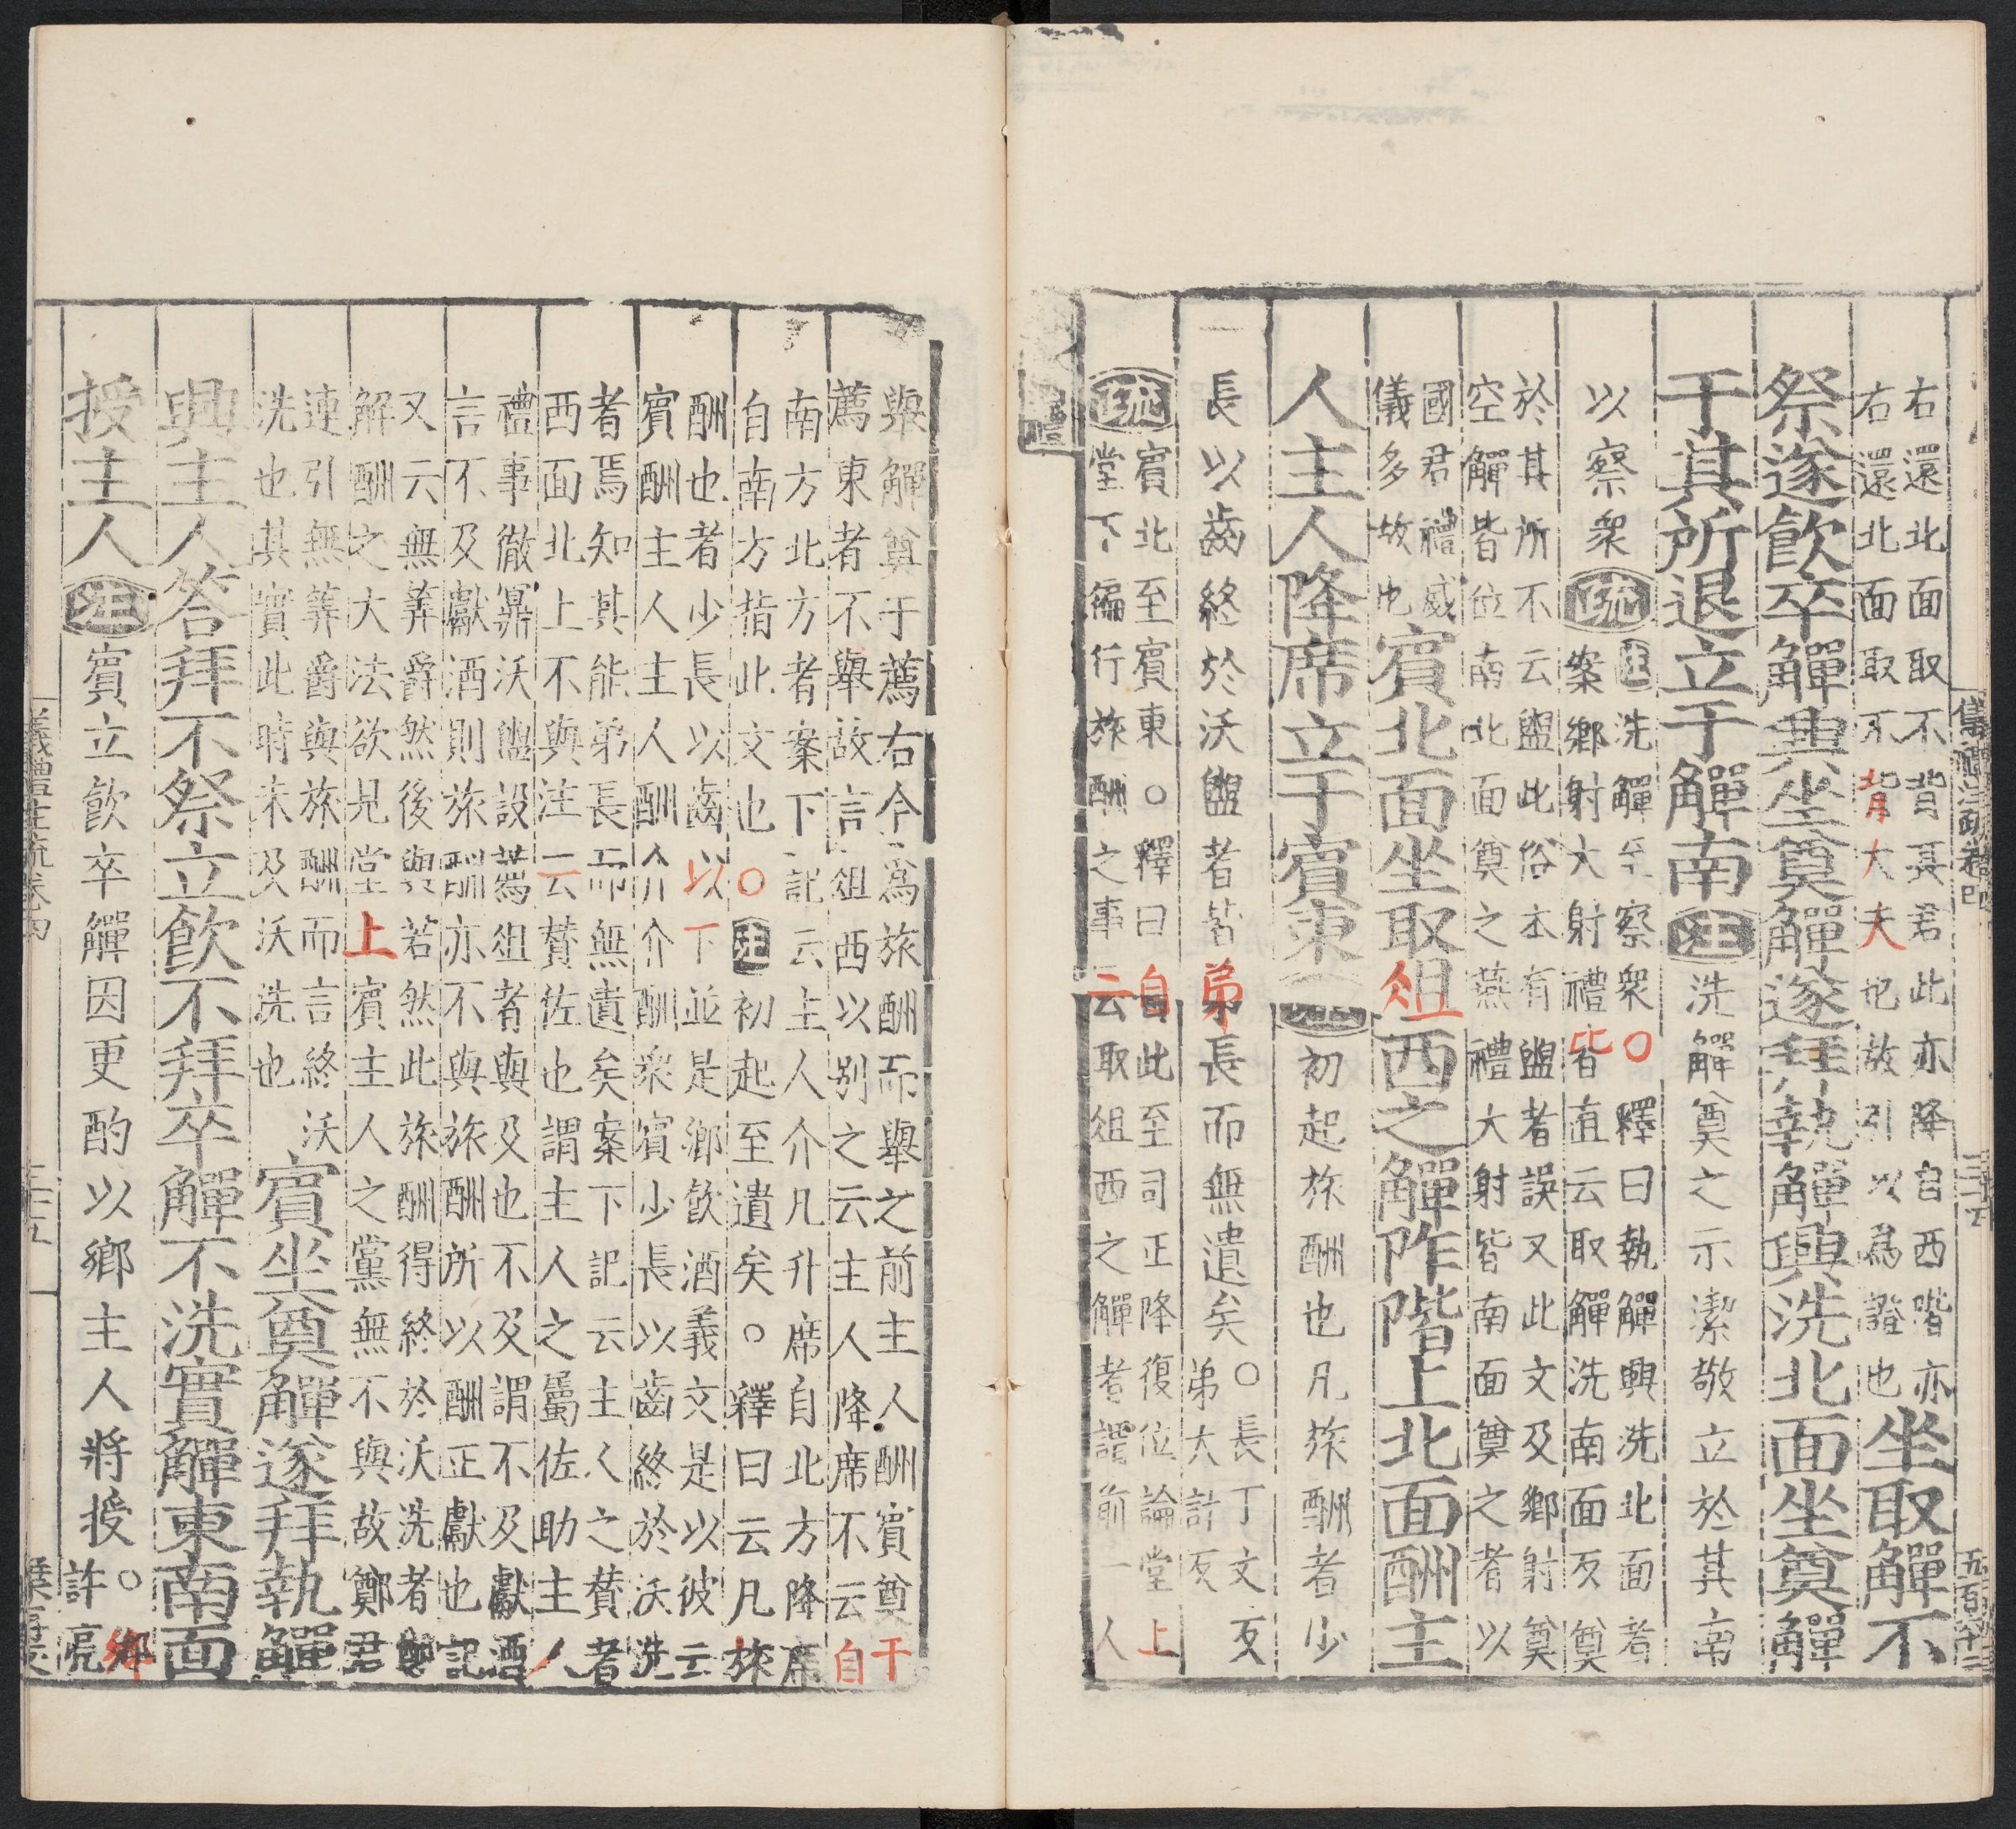 右還北面取不背長君此亦降自西階亦
右還北面取不背大夫也故引以為證也
坐取觶不
祭遂飲卒觶興坐奠觶遂拜執觶興洗北面坐奠觶
于其所退立于觶南
注
洗觶奠之示潔敬立於其南
以察衆
疏
注洗觶至察衆〇釋曰執觶興洗北面者
案鄉射大射禮皆直云取觶洗南面反奠
於其所不云盥此俗本有盥者誤又此文及鄉射奠
空觶皆位南北面奠之燕禮大射皆南面奠之者以
國君禮威
儀多故也
賓北面坐取俎西之觶阼階上北面酬主
人主人降席立于賓東
初起旅酬也凡旅酬者少
長以齒終於沃盥者皆弟長而無遺矣〇
長丁丈反
弟大計反
疏
賓北至賓東〇釋曰自此至司正降復位論堂上
堂下徧行旅酬之事云取俎西之觶者謂前一人
儀禮注疏卷四
五百八十二
舉觶奠于薦右今為旅酬而舉之前主人酬賓奠于
薦東者不舉故言俎西以別之云主人降席不云自
南方北方者案下記云主人介凡升席自北方降席
自南方指此文也〇注初起至遺矣〇釋曰云凡旅
酬也者少長以齒以下並是鄉飲酒義文是以彼云
賓酬主人主人酬介介酬衆賓少長以齒終於沃洗
者焉知其能弟長而無遺矣案下記云主人之贊者
西面北上不與注云贊佐也謂主人之屬佐助主人
禮事徹鼏沃盥設薦俎者與及也不及謂不及獻酒
言不及獻酒則旅酬亦不與旅酬所以酬正獻也記
又云無筭爵然後與若然此旅酬得終於沃洗者鄭
解酬之大法欲見堂上賓主人之黨無不與故鄭君
連引無筭爵與旅酬而言終沃
洗也其實此時未及沃洗也
賓坐奠觶遂拜執觶
興主人答拜不祭立飲不拜卒觶不洗實觶東南面
授主人
注
賓立飲卒觶因更酌以鄉主人將授〇
鄉
許亮
儀禮注疏卷四